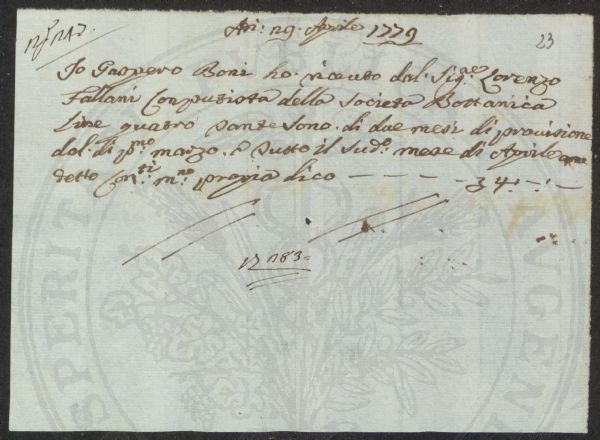 Adi: 29 Aprile 1779
23
Io Gaspero Boni ho riceuto dal Sig:re Lorenzo
Fallani Conputista della Società Bottanica
Lire quatro Dante sono di due mesi di provisione
dal di p:mo marzo a tutto il Sud:o mese di Aprile
detto Con:ti m:no propia dico — — — — 4 — —